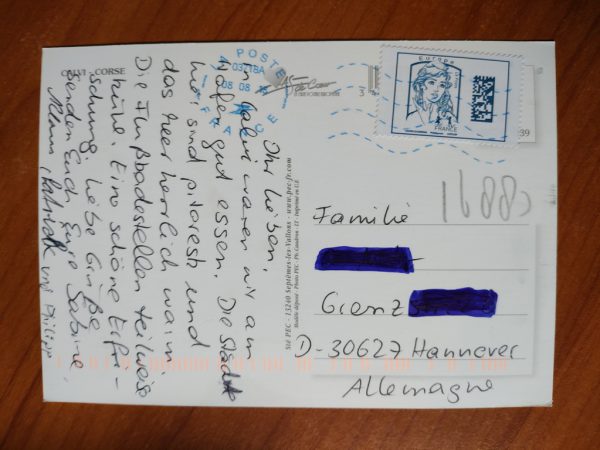 CALVI - CORSE
Ihr Lieben,
in Calvi waren wir am
Hafen gut essen. Die Städte
hier sind pitoresk und
das Meer herrlich warm.
Die Flußbadestellen teilweise
kühl. Eine schöne Erfri-
schung. Liebe Grüße
senden Euch Eure Sabine
und Philipp
Sté PEC - 13240 Septèmes-les-Vallons - www.pec-fr.com
POSTE
03718A
08 08
FRANCE
Europe
FRANCE
39
Familie
Grenz
D-30627 Hannover
Allemagne